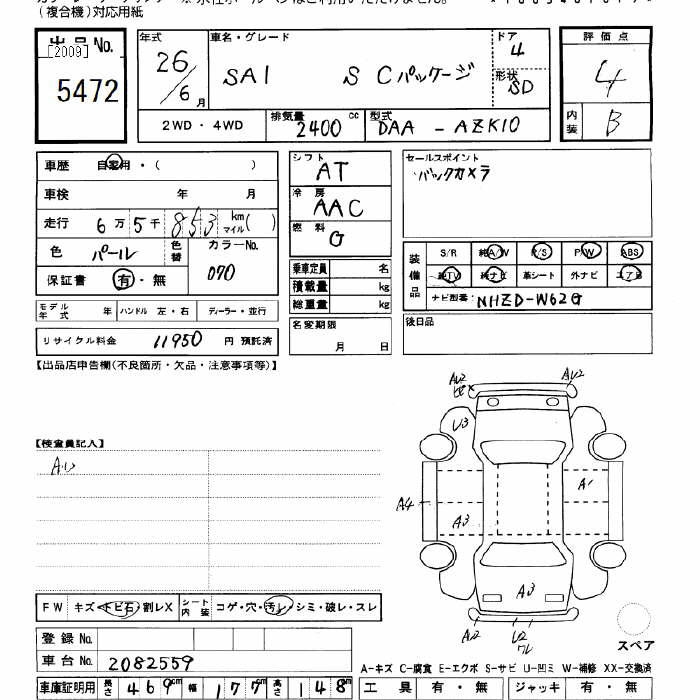 (複合機)対応用紙
出品No.
[2009]
5472
年式
26/6月
車名・グレード
SAI S Cパッケージ
ドア
4
形状
SD
評価点
4
内装
B
2WD・4WD
排気量 2400 cc
型式 DAA-AZK10
車歴 自家用・( )
車検 年 月
走行 6万5千853 km マイル( )
色 パール 色替 カラーNo. 070
保証書 有・無
モデル年式 年 ハンドル 左・右 ディーラー・並行
リサイクル料金 11950 円 預託済
シフト
AT
冷房
AAC
燃料
G
乗車定員 名
積載量 kg
総重量 kg
名変期限
月 日
セールスポイント
バックカメラ
装備品
S/R 純A/W P/S P/W ABS
純TV 純ナビ 革シート 外ナビ エアB
ナビ型番: NHZD-W62G
後日品
【出品店申告欄(不良箇所・欠品・注意事項等)】
【検査員記入】
AU
AU2
AU2
U3
A1
A4
A3
A3
AU2
U2
スペア
FW キズ・トビ石・割レX シート内装 コゲ・穴・汚レ・シミ・破レ・スレ
登録No.
車台No. 2082559
A-キズ C-腐食 E-エクボ S-サビ U-凹ミ W-補修 XX-交換済
車庫証明用 長さ 460cm 幅 177cm 高さ 148cm
工具 有・無 ジャッキ 有・無